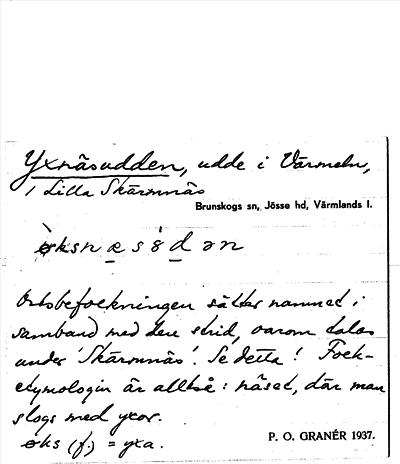 Yxnäsudden, udde i Värmeln,
/ Lilla Skärmnäs
Brunskogs sn, Jösse hd, Värmlands l.
øksnæsòdən
Ortsbefolkningen sätter namnet i
samband med den strid, varom talas
under 'Skärmnäs'. Se detta! Folk-
etymologin är alltså: näset, där man
slogs med yxor.
øks (f.) = yxa.
P. O. GRANÉR 1937.